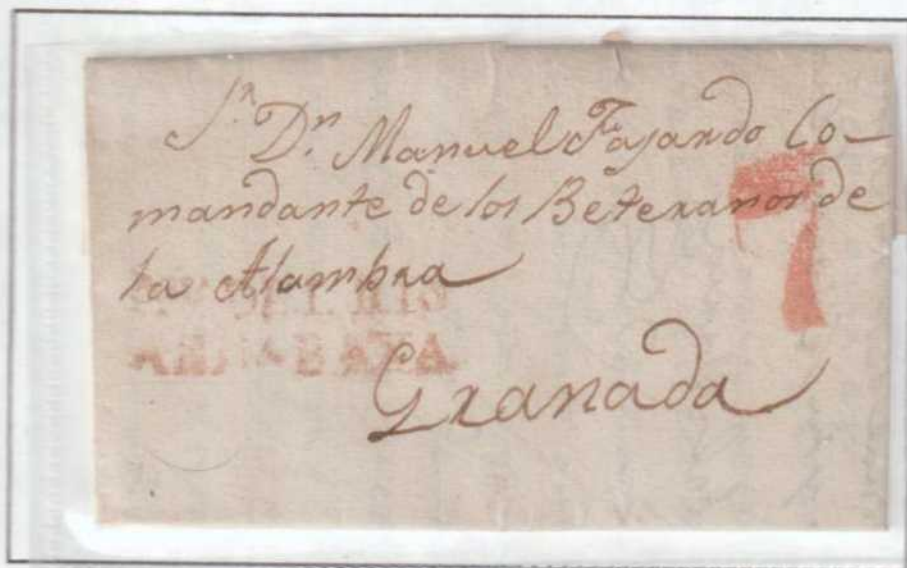 Sr. Dn. Manuel Fajardo Co-
mandante de los Beteranos de
la Alambra
7
Granada